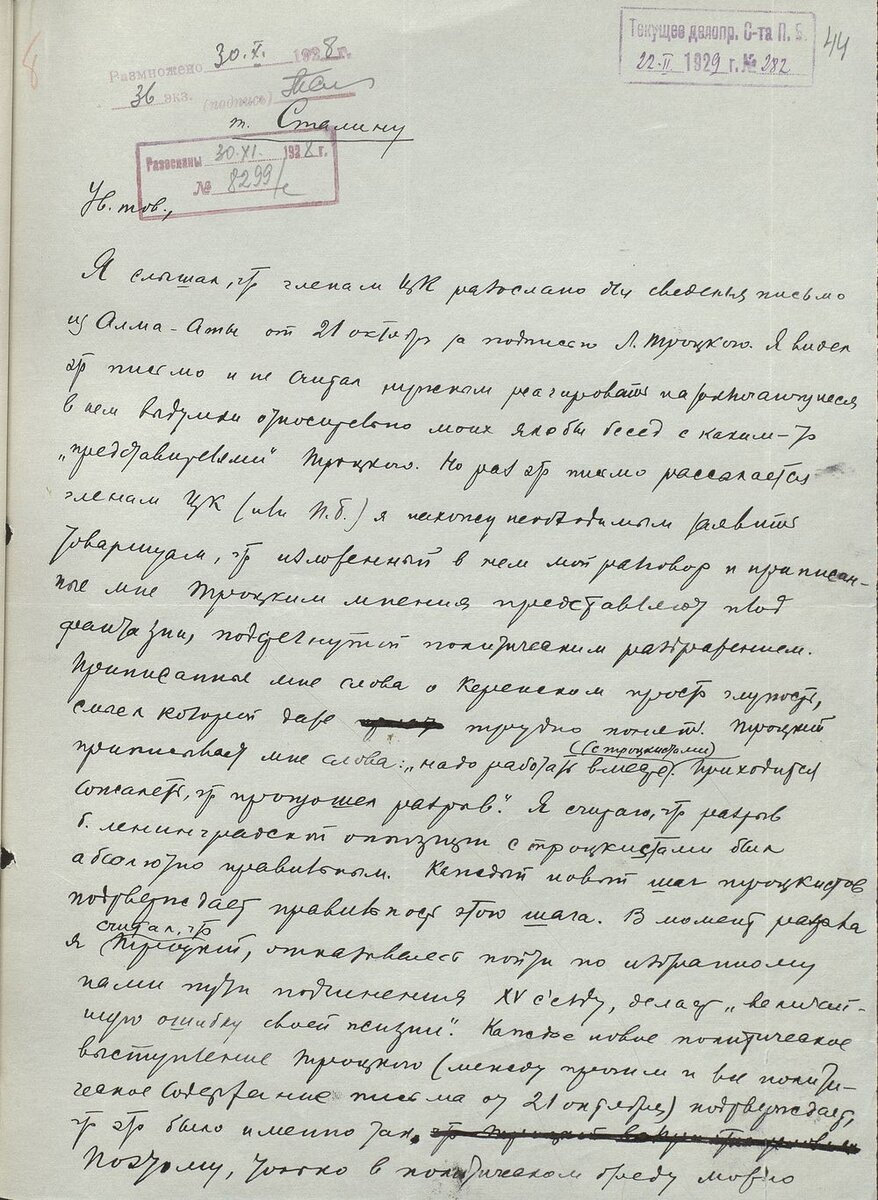 8
Размножено 30.X. 1928 г.
36 экз. (подпись)
Текущее делопр. С-та П. Б.
22-II 1929 г. № 282
44
т. Сталину
Разосланы 30.XI. 1928 г.
№ 8299/с
Ув. тов.,
Я слышал, что членам ЦК разослано для сведенья письмо
из Алма-Аты от 21 октября за подписью Л. Троцкого. Я видел
это письмо и не считал нужным реагировать на заключающиеся
в нем выдумки относительно моих якобы бесед с каким-то
„представителями" Троцкого. Но раз это письмо рассылается
членам ЦК (или П.Б.) я нахожу необходимым заявить
товарищам, что изложенный в нем мой разговор и приписан-
ные мне Троцким мнения представляют плод
фантазии, подстегнутой политическим раздражением.
Приписанные мне слова о Керенском просто глупость,
смысл которой даже трудно понять. Троцкий
приписывает мне слова: „надо работать вместе (с троцкистами). Приходится
сожалеть, что произошел разрыв". Я считаю, что разрыв
б. ленинградской оппозиции с троцкистами был
абсолютно правильным. Каждый новый шаг троцкистов
подтверждает правильность этого шага. В момент разрыва
я считал, что Троцкий, отказываясь пойти по избранному
нами пути подчинения XV съезду, делает „величай-
шую ошибку своей жизни". Каждое новое политическое
выступление Троцкого (между прочим и все полити-
ческое содержание письма от 21 октября) подтверждает,
что это было именно так.
Поэтому, только в политическом бреду можно